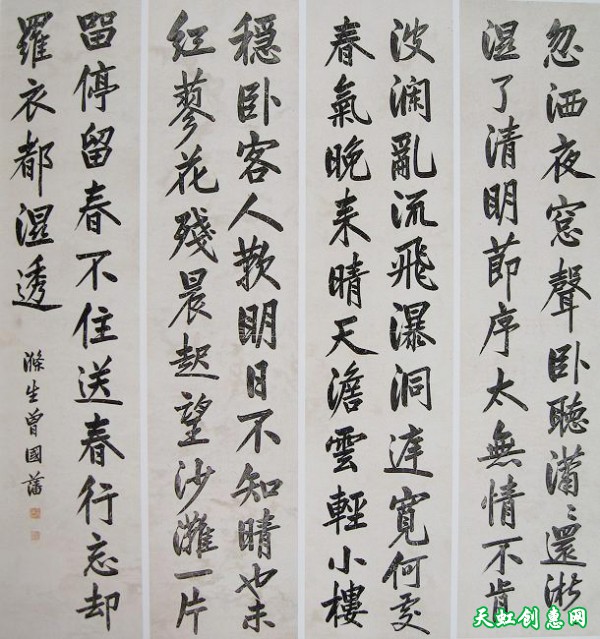 忽洒夜窓聲卧聽瀟〻還淅
湿了清明節序太無情不肯
波瀾亂流飛瀑洞庭寬何处
春氣晚来晴天澹雲輕小樓
穏卧客人歎明日不知晴也未
红蓼花殘晨起望沙灘一片
畱停留春不住送春行忘却
羅衣都湿透
滌生曾國藩
天虹创惠网